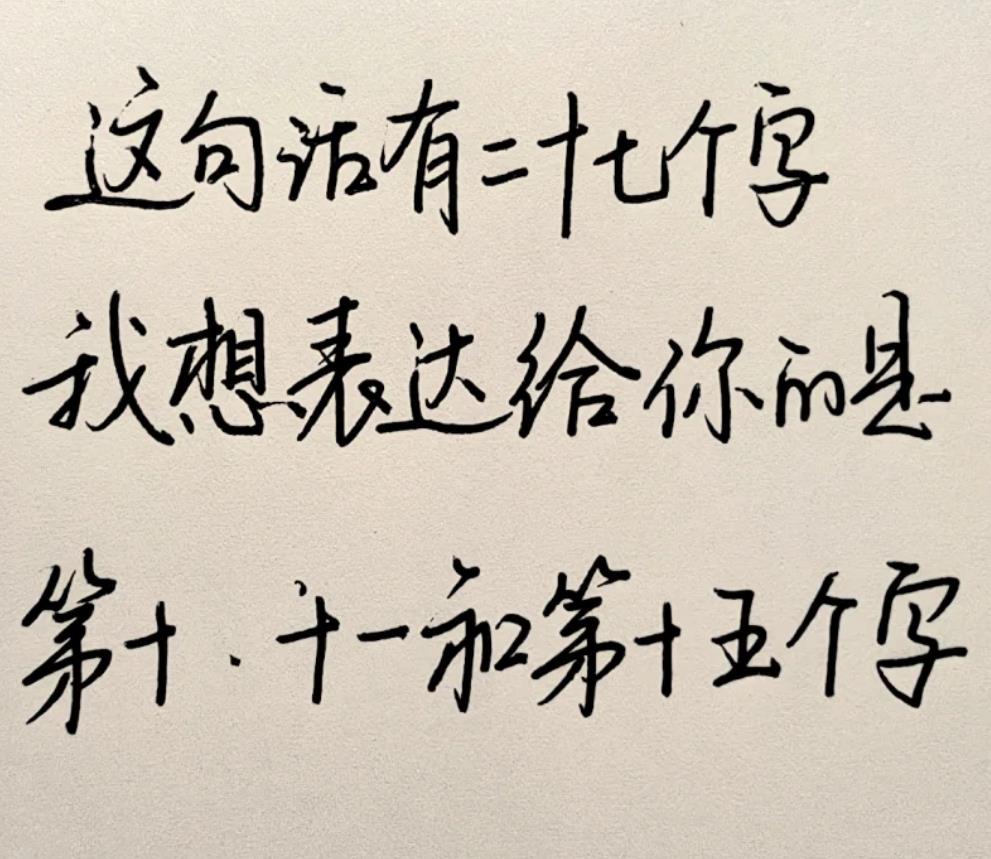 这句话有二十七个字
我想表达给你的是
第十.十一和第十五个字